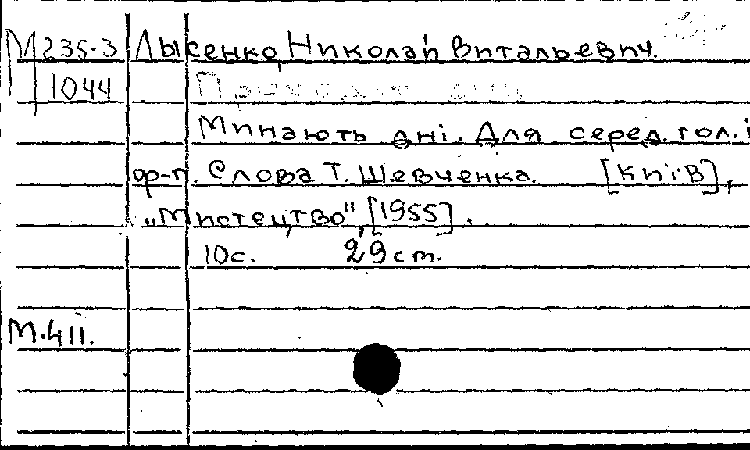 М 235-3 Лысенко, Николай Витальевич.
1044
Минають дні. Для серед. гол. і
ф-п. Слова Т. Шевченка. [Київ],
„Мистецтво", [1955].
10с. 29 cm.
М.411.